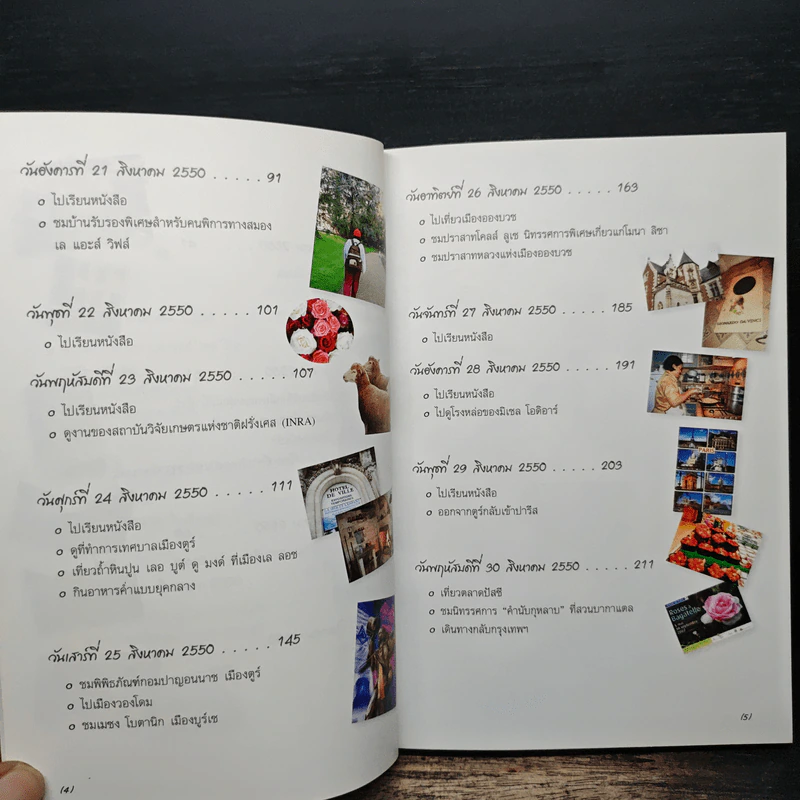 วันอังคารที่ 21 สิงหาคม 2550 . . . . . 91
o ไปเรียนหนังสือ
o ชมบ้านรับรองพิเศษสำหรับคนพิการทางสมอง
เล แอะส์ วิฟส์
วันพุธที่ 22 สิงหาคม 2550 . . . . . 101
o ไปเรียนหนังสือ
วันพฤหัสบดีที่ 23 สิงหาคม 2550 . . . . . 107
o ไปเรียนหนังสือ
o ดูงานของสถาบันวิจัยเกษตรแห่งชาติฝรั่งเศส (INRA)
วันศุกร์ที่ 24 สิงหาคม 2550 . . . . . 111
o ไปเรียนหนังสือ
o ดูที่ทำการเทศบาลเมืองตูร์
o เที่ยวถ้ำหินปูน เลอ บูต์ ดู มงด์ ที่เมืองเล ลอช
o กินอาหารค่ำแบบยุคกลาง
HOTEL
DE VILLE
วันเสาร์ที่ 25 สิงหาคม 2550 . . . . . 145
o ชมพิพิธภัณฑ์กอมปาญอนนาช เมืองตูร์
o ไปเมืองวองโดม
o ชมเมซง โบตานิก เมืองบูร์เซ
(4)
วันอาทิตย์ที่ 26 สิงหาคม 2550 . . . . . 163
o ไปเที่ยวเมืองอองบวซ
o ชมปราสาทโคลส์ ลูเซ นิทรรศการพิเศษเกี่ยวแก่โมนา ลิซา
o ชมปราสาทหลวงแห่งเมืองอองบวซ
LEONARDO DA VINCI
วันจันทร์ที่ 27 สิงหาคม 2550 . . . . . 185
o ไปเรียนหนังสือ
วันอังคารที่ 28 สิงหาคม 2550 . . . . . 191
o ไปเรียนหนังสือ
o ไปดูโรงหล่อของมิเชล โอดิอาร์
PARIS
วันพุธที่ 29 สิงหาคม 2550 . . . . . 203
o ไปเรียนหนังสือ
o ออกจากตูร์กลับเข้าปารีส
วันพฤหัสบดีที่ 30 สิงหาคม 2550 . . . . . 211
o เที่ยวตลาดปัสซี
o ชมนิทรรศการ “คำนับกุหลาบ” ที่สวนบากาแตล
o เดินทางกลับกรุงเทพฯ
Roses à
Bagatelle
(5)